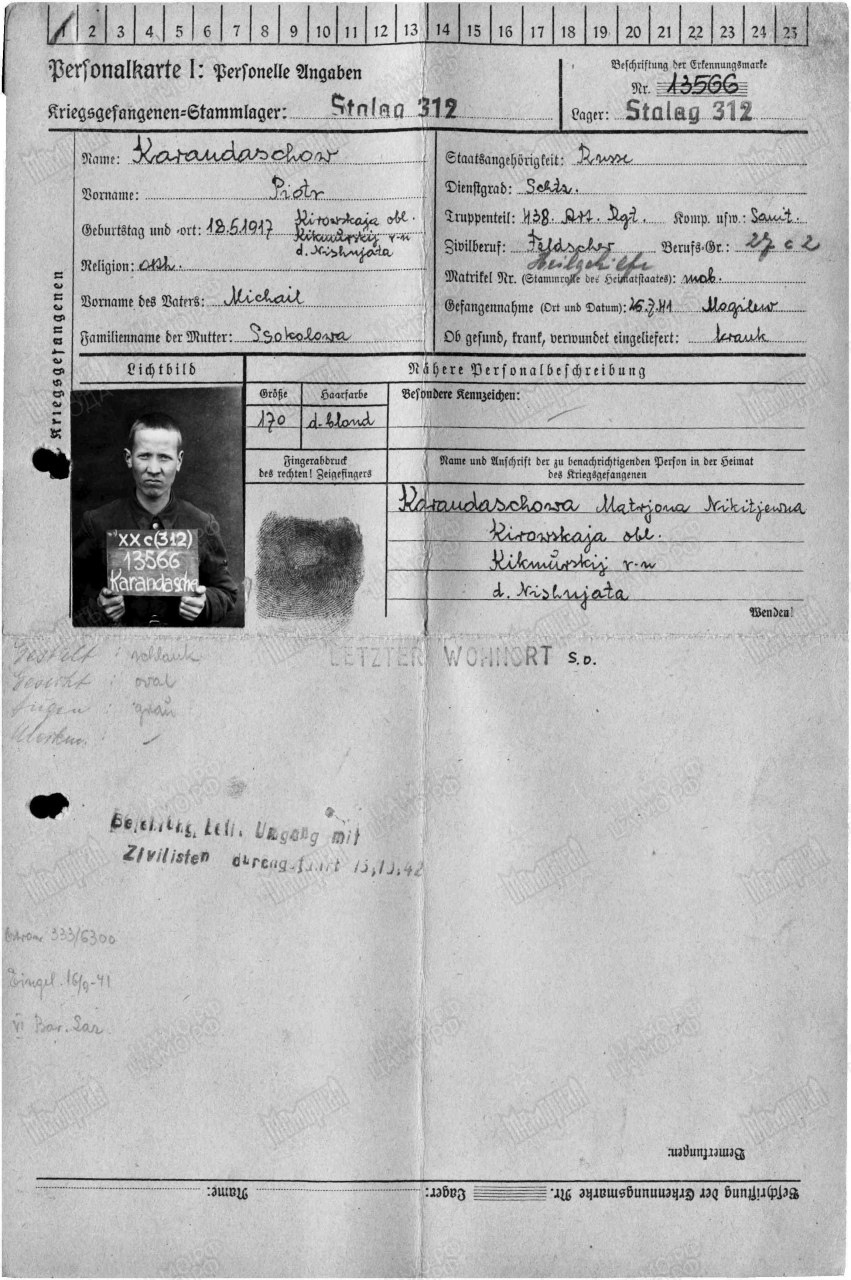 1 2 3 4 5 6 7 8 9 10 11 12 13 14 15 16 17 18 19 20 21 22 23 24 25
Personalkarte I: Personelle Angaben
Kriegsgefangenen-Stammlager: Stalag 312
Beschriftung der Erkennungsmarke
Nr. 13566
Lager: Stalag 312
des Kriegsgefangenen
Name: Karandaschow
Vorname: Piotr
Geburtstag und -ort: 18.5.1917 Kirowskaja obl.
Kikmurskij r-n
d. Nishnjata
Religion: orth.
Vorname des Vaters: Michail
Familienname der Mutter: Ssokolowa
Staatsangehörigkeit: Russe
Dienstgrad: Schtz.
Truppenteil: 438. Art. Rgt. Komp. usw.: Sanit.
Zivilberuf: Feldscher Berufs-Gr.: 27 c 2
Heilgehilfe
Matrikel Nr. (Stammrolle des Heimatstaates): mob.
Gefangennahme (Ort und Datum): 26.7.41 Mogilew
Ob gesund, krank, verwundet eingeliefert: krank
Lichtbild
Nähere Personalbeschreibung
Größe Haarfarbe Besondere Kennzeichen:
170 d. blond
Fingerabdruck
des rechten! Zeigefingers
Name und Anschrift der zu benachrichtigenden Person in der Heimat
des Kriegsgefangenen
Karandaschowa Matrjona Nikitjewna
Kirowskaja obl.
Kikmurskij r-n
d. Nishnjata
Wenden!
XX c (312)
13566
Karandascho
LETZTER WOHNORT s.o.
Gestalt : schlank
Gesicht : oval
Augen : grau
Umgang mit
Zivilisten 13.10.42
333/6300
16/9-41
Мемориал
ЦАМО РФ
Bemerkungen:
Name: Lager: Beschriftung der Erkennungsmarke Nr.